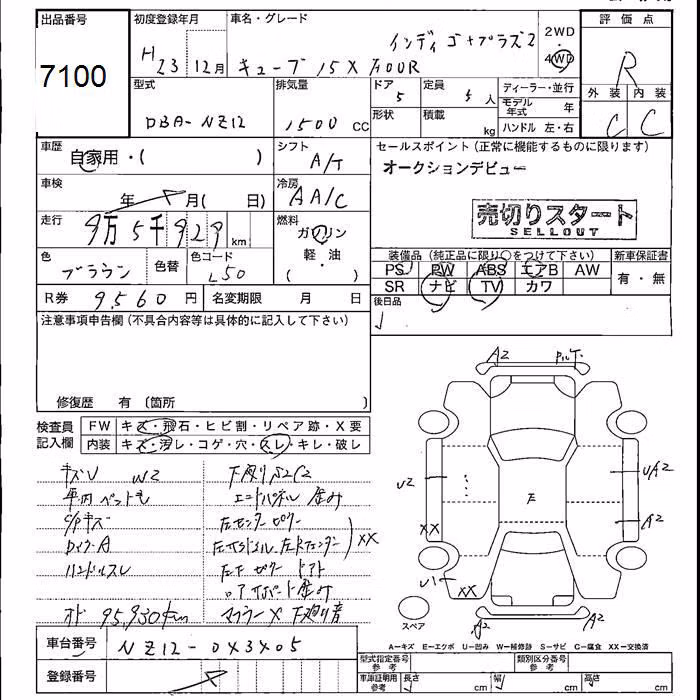 出品番号
7100
初度登録年月
H23 12月
車名・グレード
インディゴ+プラズマ
キューブ 15X FOUR
2WD
・
4WD
評価点
R
外装 内装
C C
型式
DBA-NZ12
排気量
1500 cc
ドア 5
定員 5 人
形状
積載 kg
ディーラー・並行
モデル年式 年
ハンドル 左・右
車歴
自家用・( )
シフト
A/T
セールスポイント(正常に機能するものに限ります)
オークションデビュー
車検
年 月( 日)
冷房
AA/C
売切りスタート
SELLOUT
走行
9万5千929 km
燃料
ガソリン
軽・油
( )
色
ブラウン
色替
色コード
L50
装備品(純正品に限り○をつけて下さい)
新車保証書
PS PW ABS エアB AW
有・無
SR ナビ TV カワ
R券 9,560円
名変期限 月 日
後日品
注意事項申告欄(不具合内容等は具体的に記入して下さい)
修復歴 有 〔箇所 〕
検査員記入欄
FW キズ・飛石・ヒビ割・リペア跡・X要
内装 キズ・汚レ・コゲ・穴・スレ・キレ・破レ
キズU W2
車内ペット毛
C/Pキズ
タイヤ-A
ハンドルスレ
オド 95,930km
下廻りS2C2
エンドパネル歪み
左センターピラー
XX
マフラーX 下廻り音
A2
U2
XX
U1
XX
UA2
A2
A2
A2
スペア
A=キズ E=エクボ U=凹み W=補修跡 S=サビ C=腐食 XX=交換済
車台番号 NZ12-0X3X05
登録番号
型式指定番号 参考
類別区分番号 参考
車庫証明用 参考
長さ cm
幅 cm
高さ cm